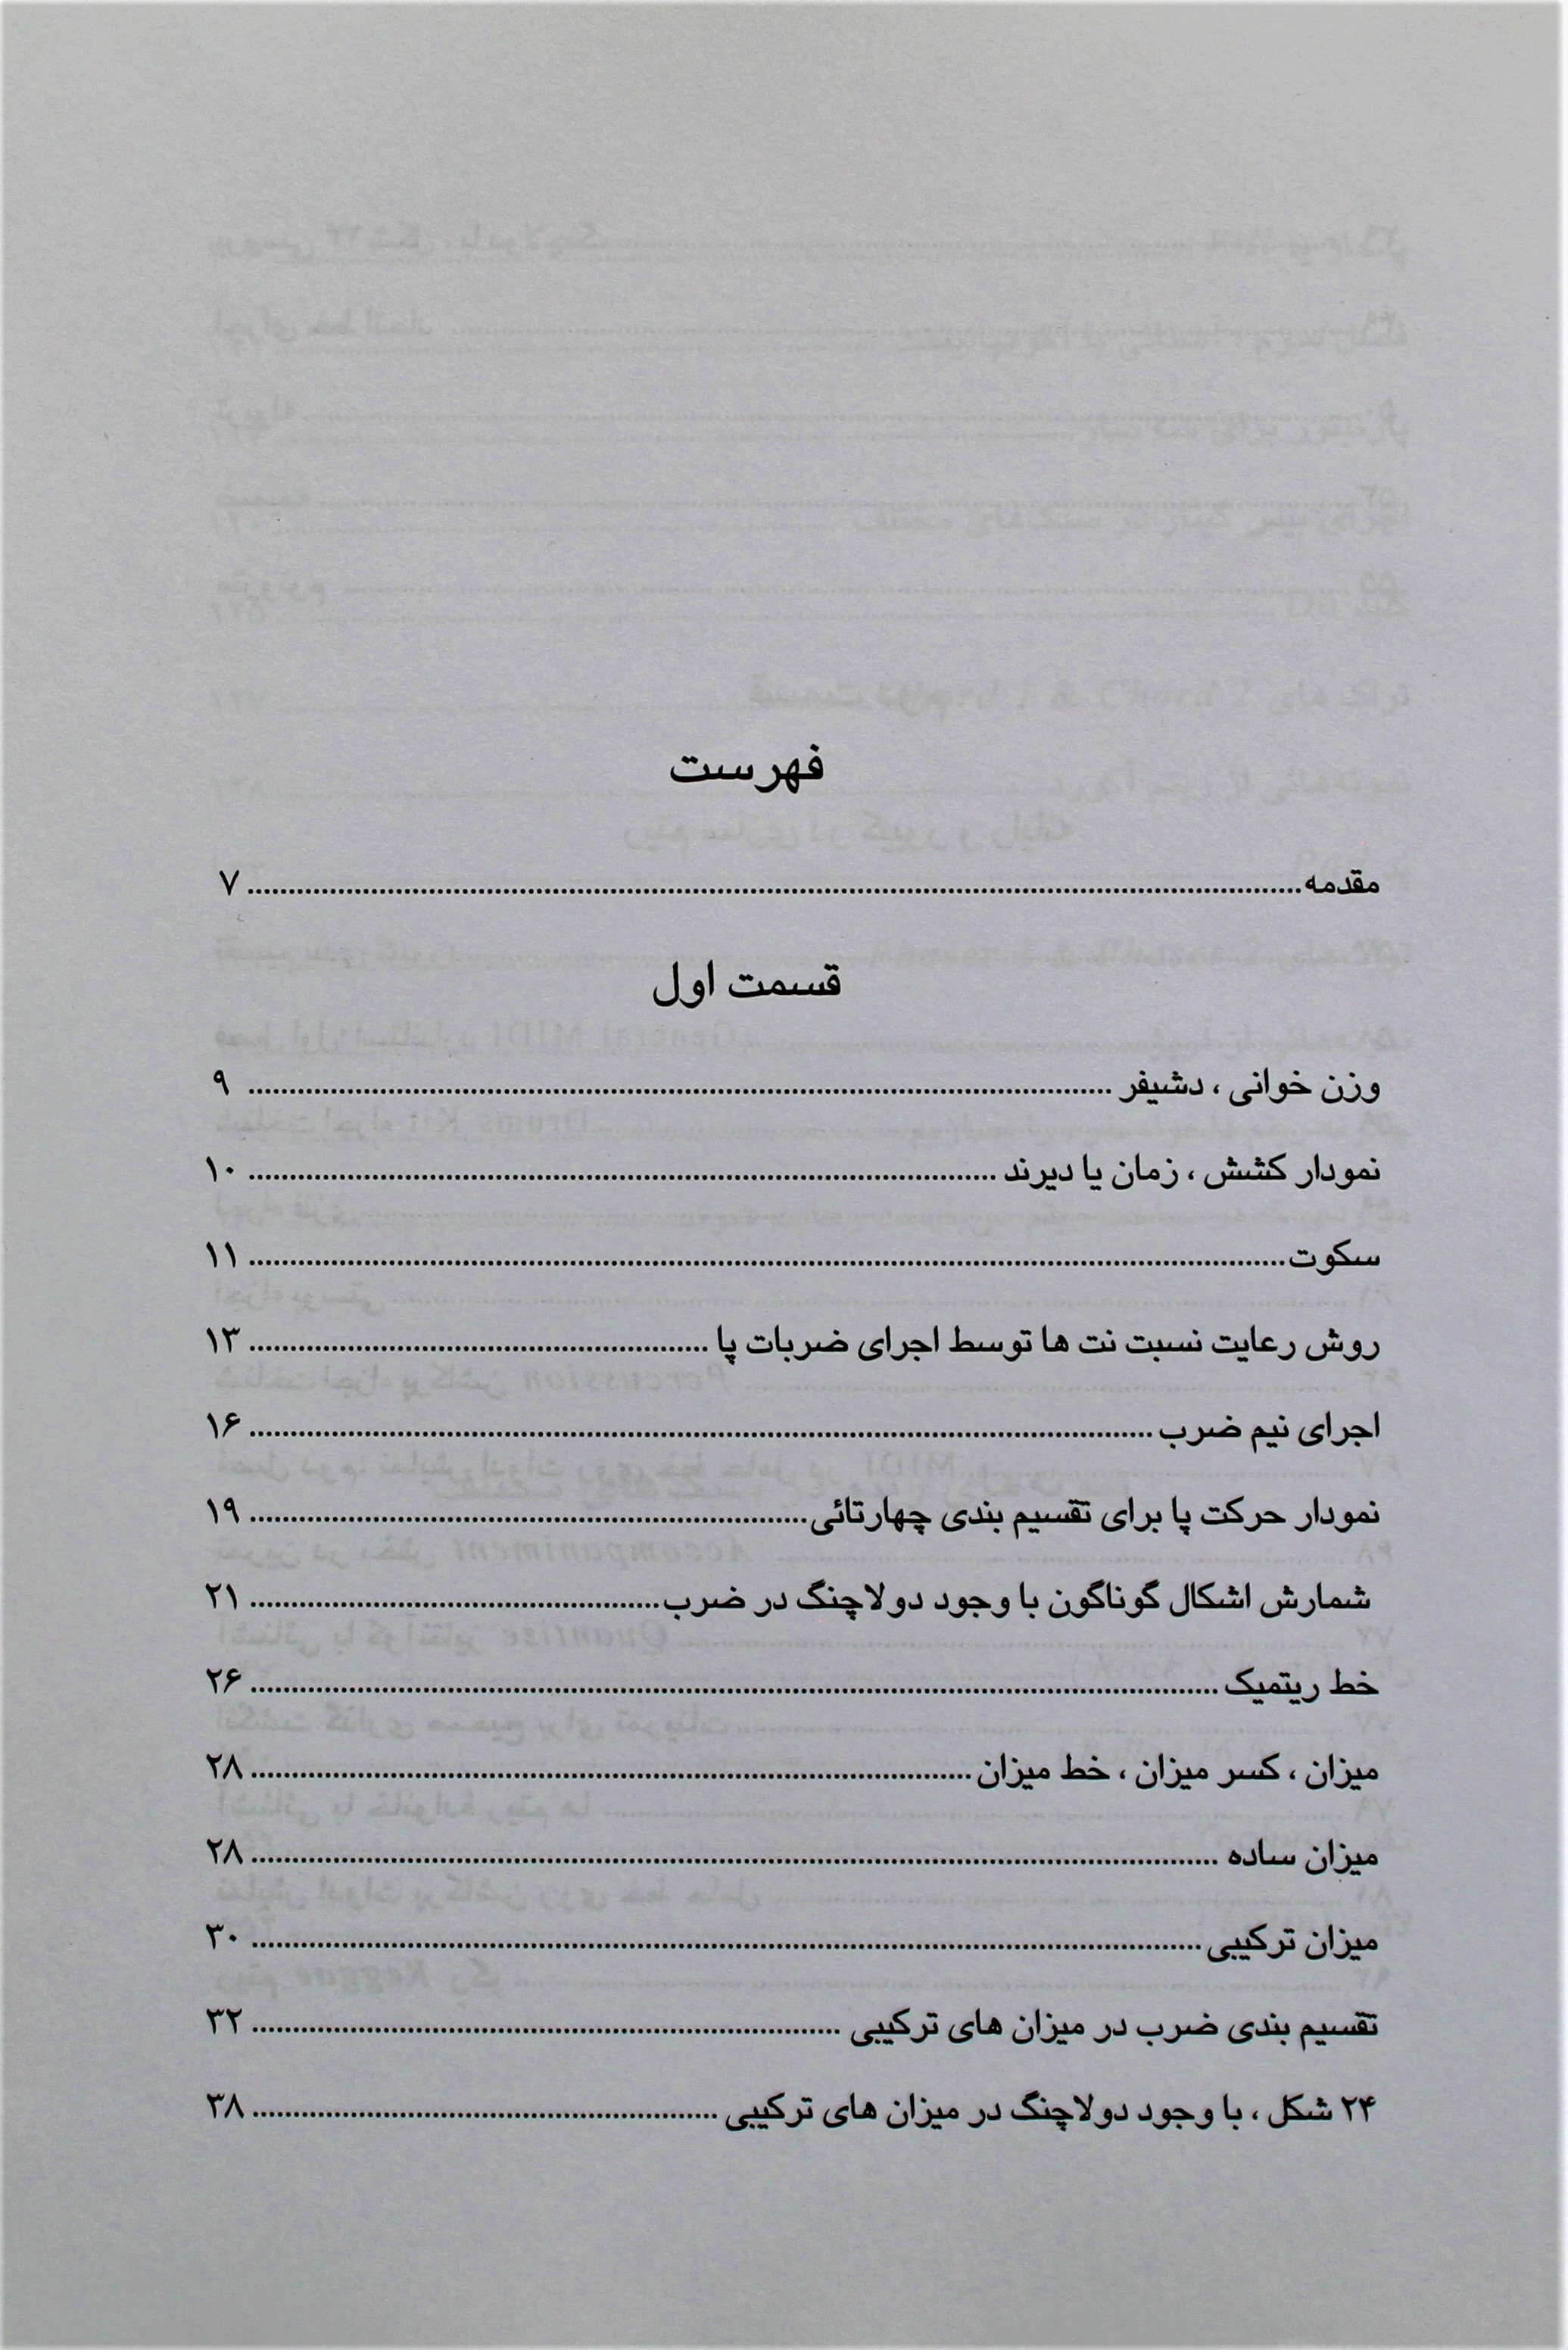 فهرست
مقدمه........................................ ۷
قسمت اول
وزن خوانی ، دشیفر ........................................ ۹
نمودار کشش ، زمان یا دیرند ........................................ ۱۰
سکوت........................................ ۱۱
روش رعایت نسبت نت ها توسط اجرای ضربات پا ........................................ ۱۳
اجرای نیم ضرب ........................................ ۱۶
نمودار حرکت پا برای تقسیم بندی چهارتائی........................................ ۱۹
شمارش اشکال گوناگون با وجود دولاچنگ در ضرب........................................ ۲۱
خط ریتمیک ........................................ ۲۶
میزان ، کسر میزان ، خط میزان........................................ ۲۸
میزان ساده ........................................ ۲۸
میزان ترکیبی ........................................ ۳۰
تقسیم بندی ضرب در میزان های ترکیبی ........................................ ۳۲
۲۴ شکل ، با وجود دولاچنگ در میزان های ترکیبی ........................................ ۳۸